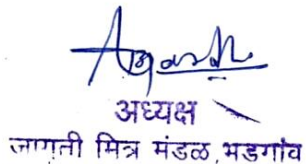 अध्यक्ष
जागृती मित्र मंडळ, भडगांव